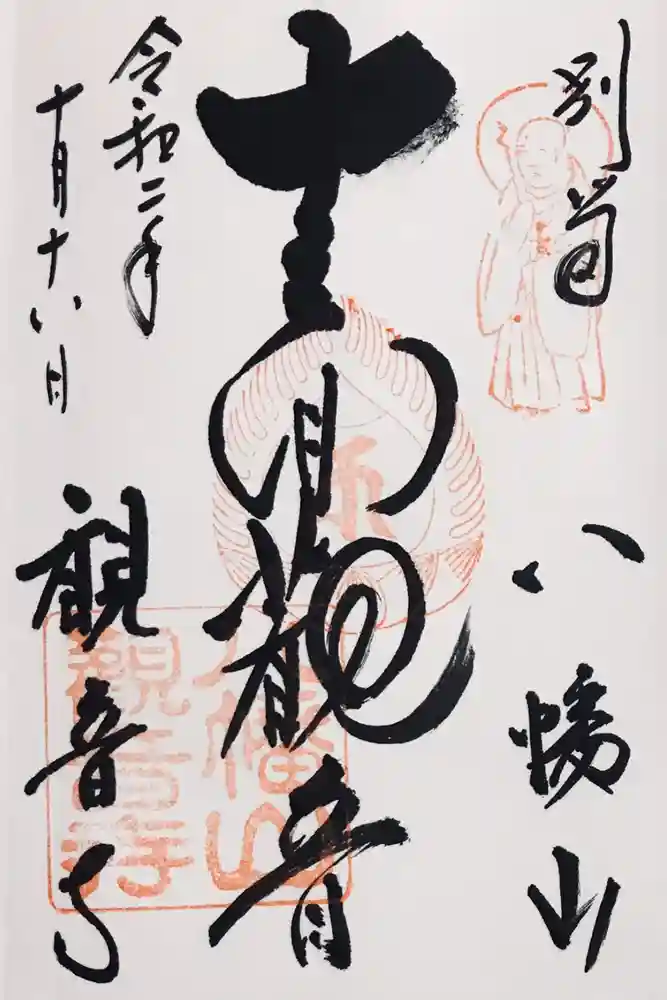 別當
八幡山
十一面観音
令和二年
十月十八日
観音寺
八幡山
観音寺